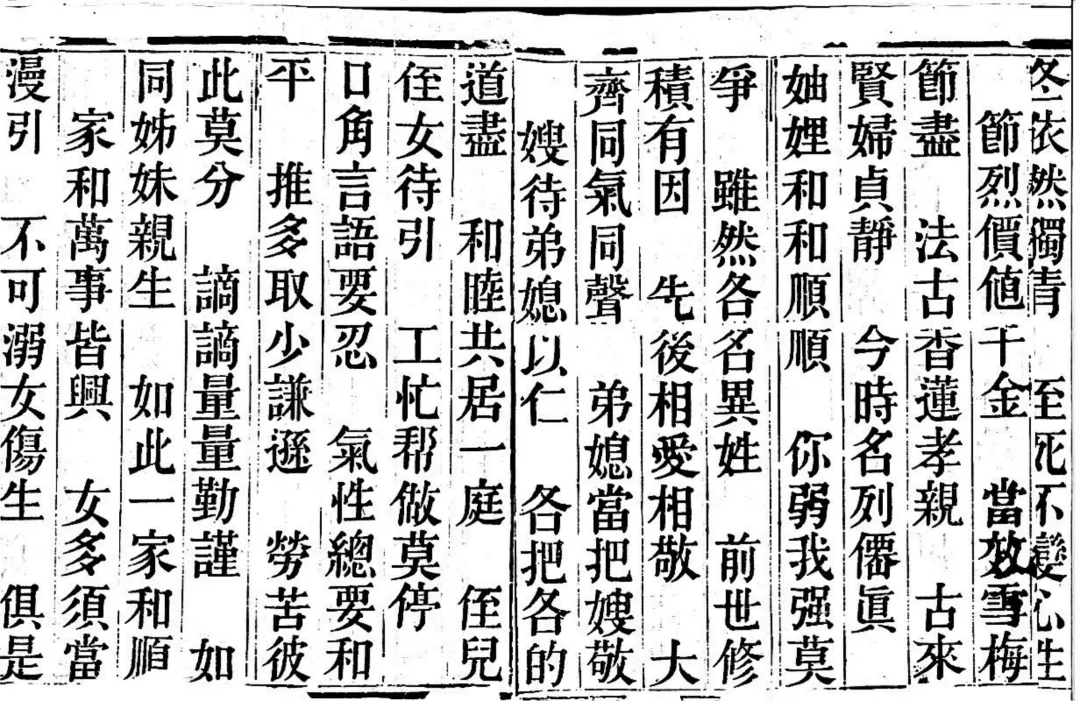 冬依然獨青　至死不變心性
節烈價值千金　當效雪梅
節盡　法古香蓮孝親　古來
賢婦貞靜　今時名列僊眞
妯娌和和順順　你弱我强莫
爭　雖然各名異姓　前世修
積有因　先後相愛相敬　大
齊同氣同聲　弟媳當把嫂敬
嫂待弟媳以仁　各把各的
道盡　和睦共居一庭　侄兒
侄女待引　工忙帮做莫停
口角言語要忍　氣性總要和
平　推多取少謙遜　勞苦彼
此莫分　謫謫量量勤謹　如
同姊妹親生　如此一家和順
家和萬事皆興　女多須當
漫引　不可溺女傷生　俱是